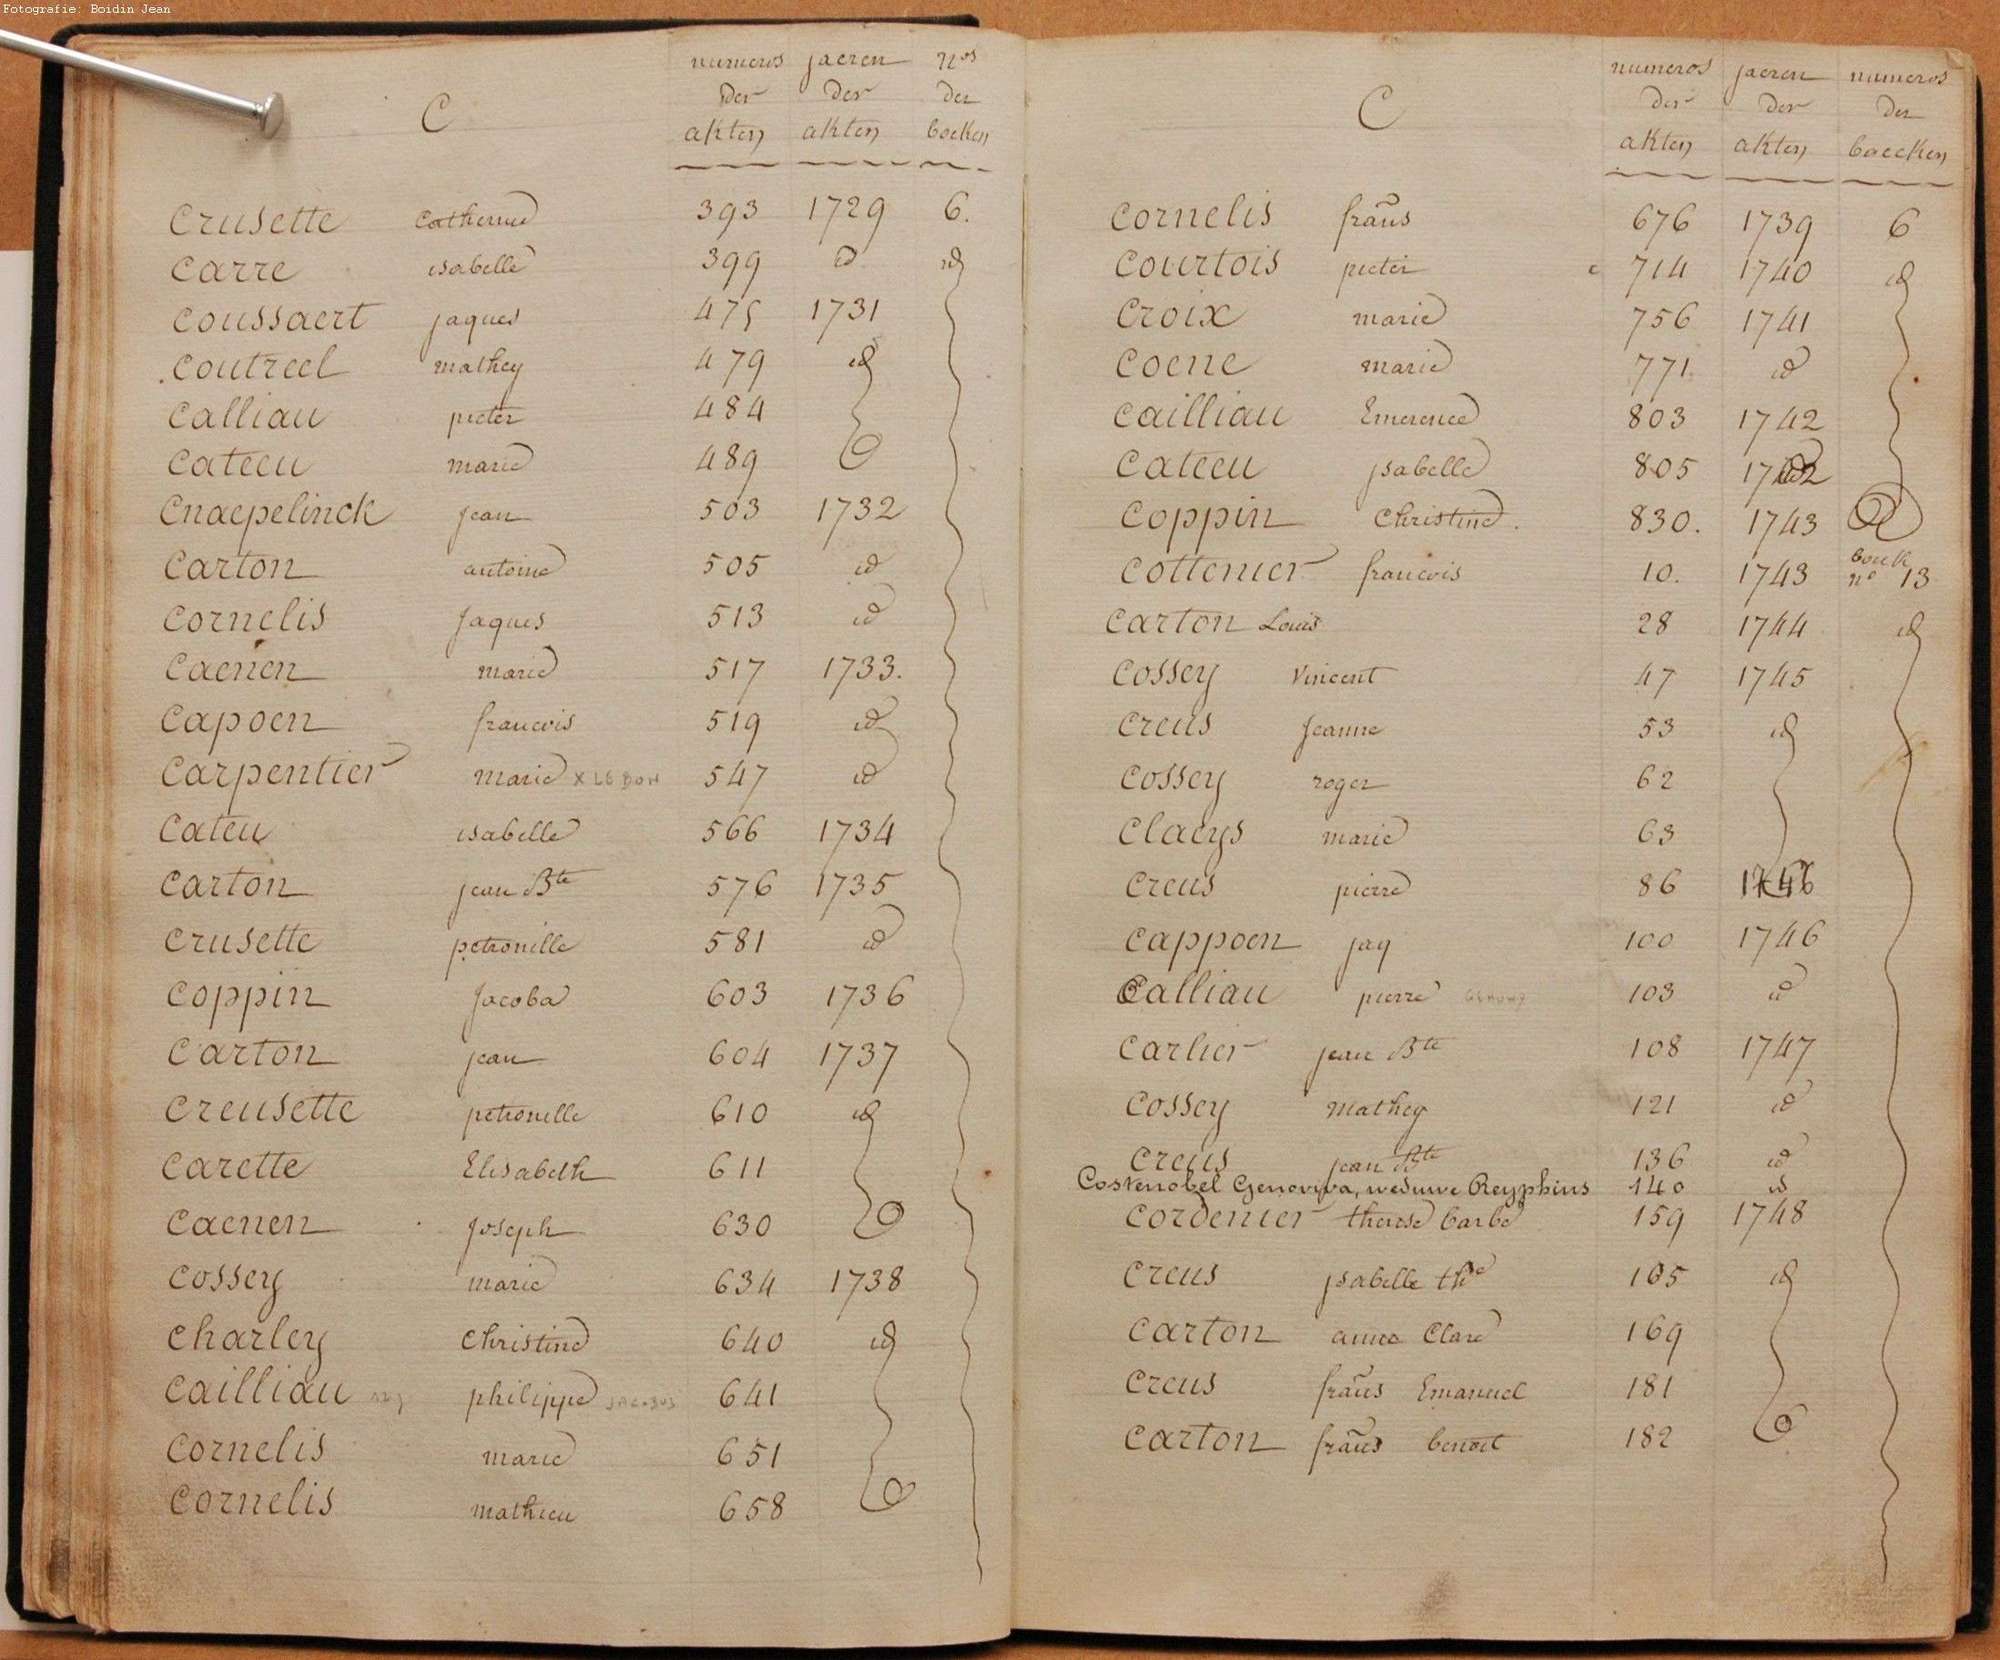 Fotografie: Boidin Jean
C
numeros der akten jaeren der akten nos der boeken
Crusette Catherine 393 1729 6.
Carre isabelle 399 id id
Coussaert jaques 475 1731
Coutreel mathey 479 id
Calliau pieter 484
Cateeu marie 489
Cnaepelinck jean 503 1732
Carton antoine 505 id
Cornelis Jaques 513 id
Caenen marie 517 1733.
Capoen francois 519 id
Carpentier marie X LE BON 547 id
Cateu isabelle 566 1734
Carton jean Bte 576 1735
Crusette petronille 581 id
Coppin Jacoba 603 1736
Carton jean 604 1737
Creusette petronelle 610 id
Carette Elisabeth 611
Caenen Joseph 630
Cossey marie 634 1738
Charley Christine 640 id
Cailliau philippe JACOBUS 641
Cornelis marie 651
Cornelis mathieu 658
C
numeros der akten jaeren der akten numeros der boecken
Cornelis frans 676 1739 6
Courtois pieter 714 1740 id
Croix marie 756 1741
Coene marie 771 id
Cailliau Emerence 803 1742
Cateeu ysabelle 805 1742
Coppin Christine. 830. 1743
Cottenier francois 10. 1743 bouk no 13
Carton Louis 28 1744 id
Cossey Vincent 47 1745
Creus Jeanne 53 id
Cossey roger 62
Claeys marie 63
Creus pierre 86 1746
Cappoen jaq 100 1746
Calliau pierre 103 id
Carlier jean Bte 108 1747
Cossey mathey 121 id
Creus jean Bte 136 id
Costenobel Genoviva, weduwe Reyphins 140 id
Cordenier therese barbe 159 1748
Creus ysabelle the 165 id
Carton anna Clare 169
Creus frans Emanuel 181
Carton frans benoit 182